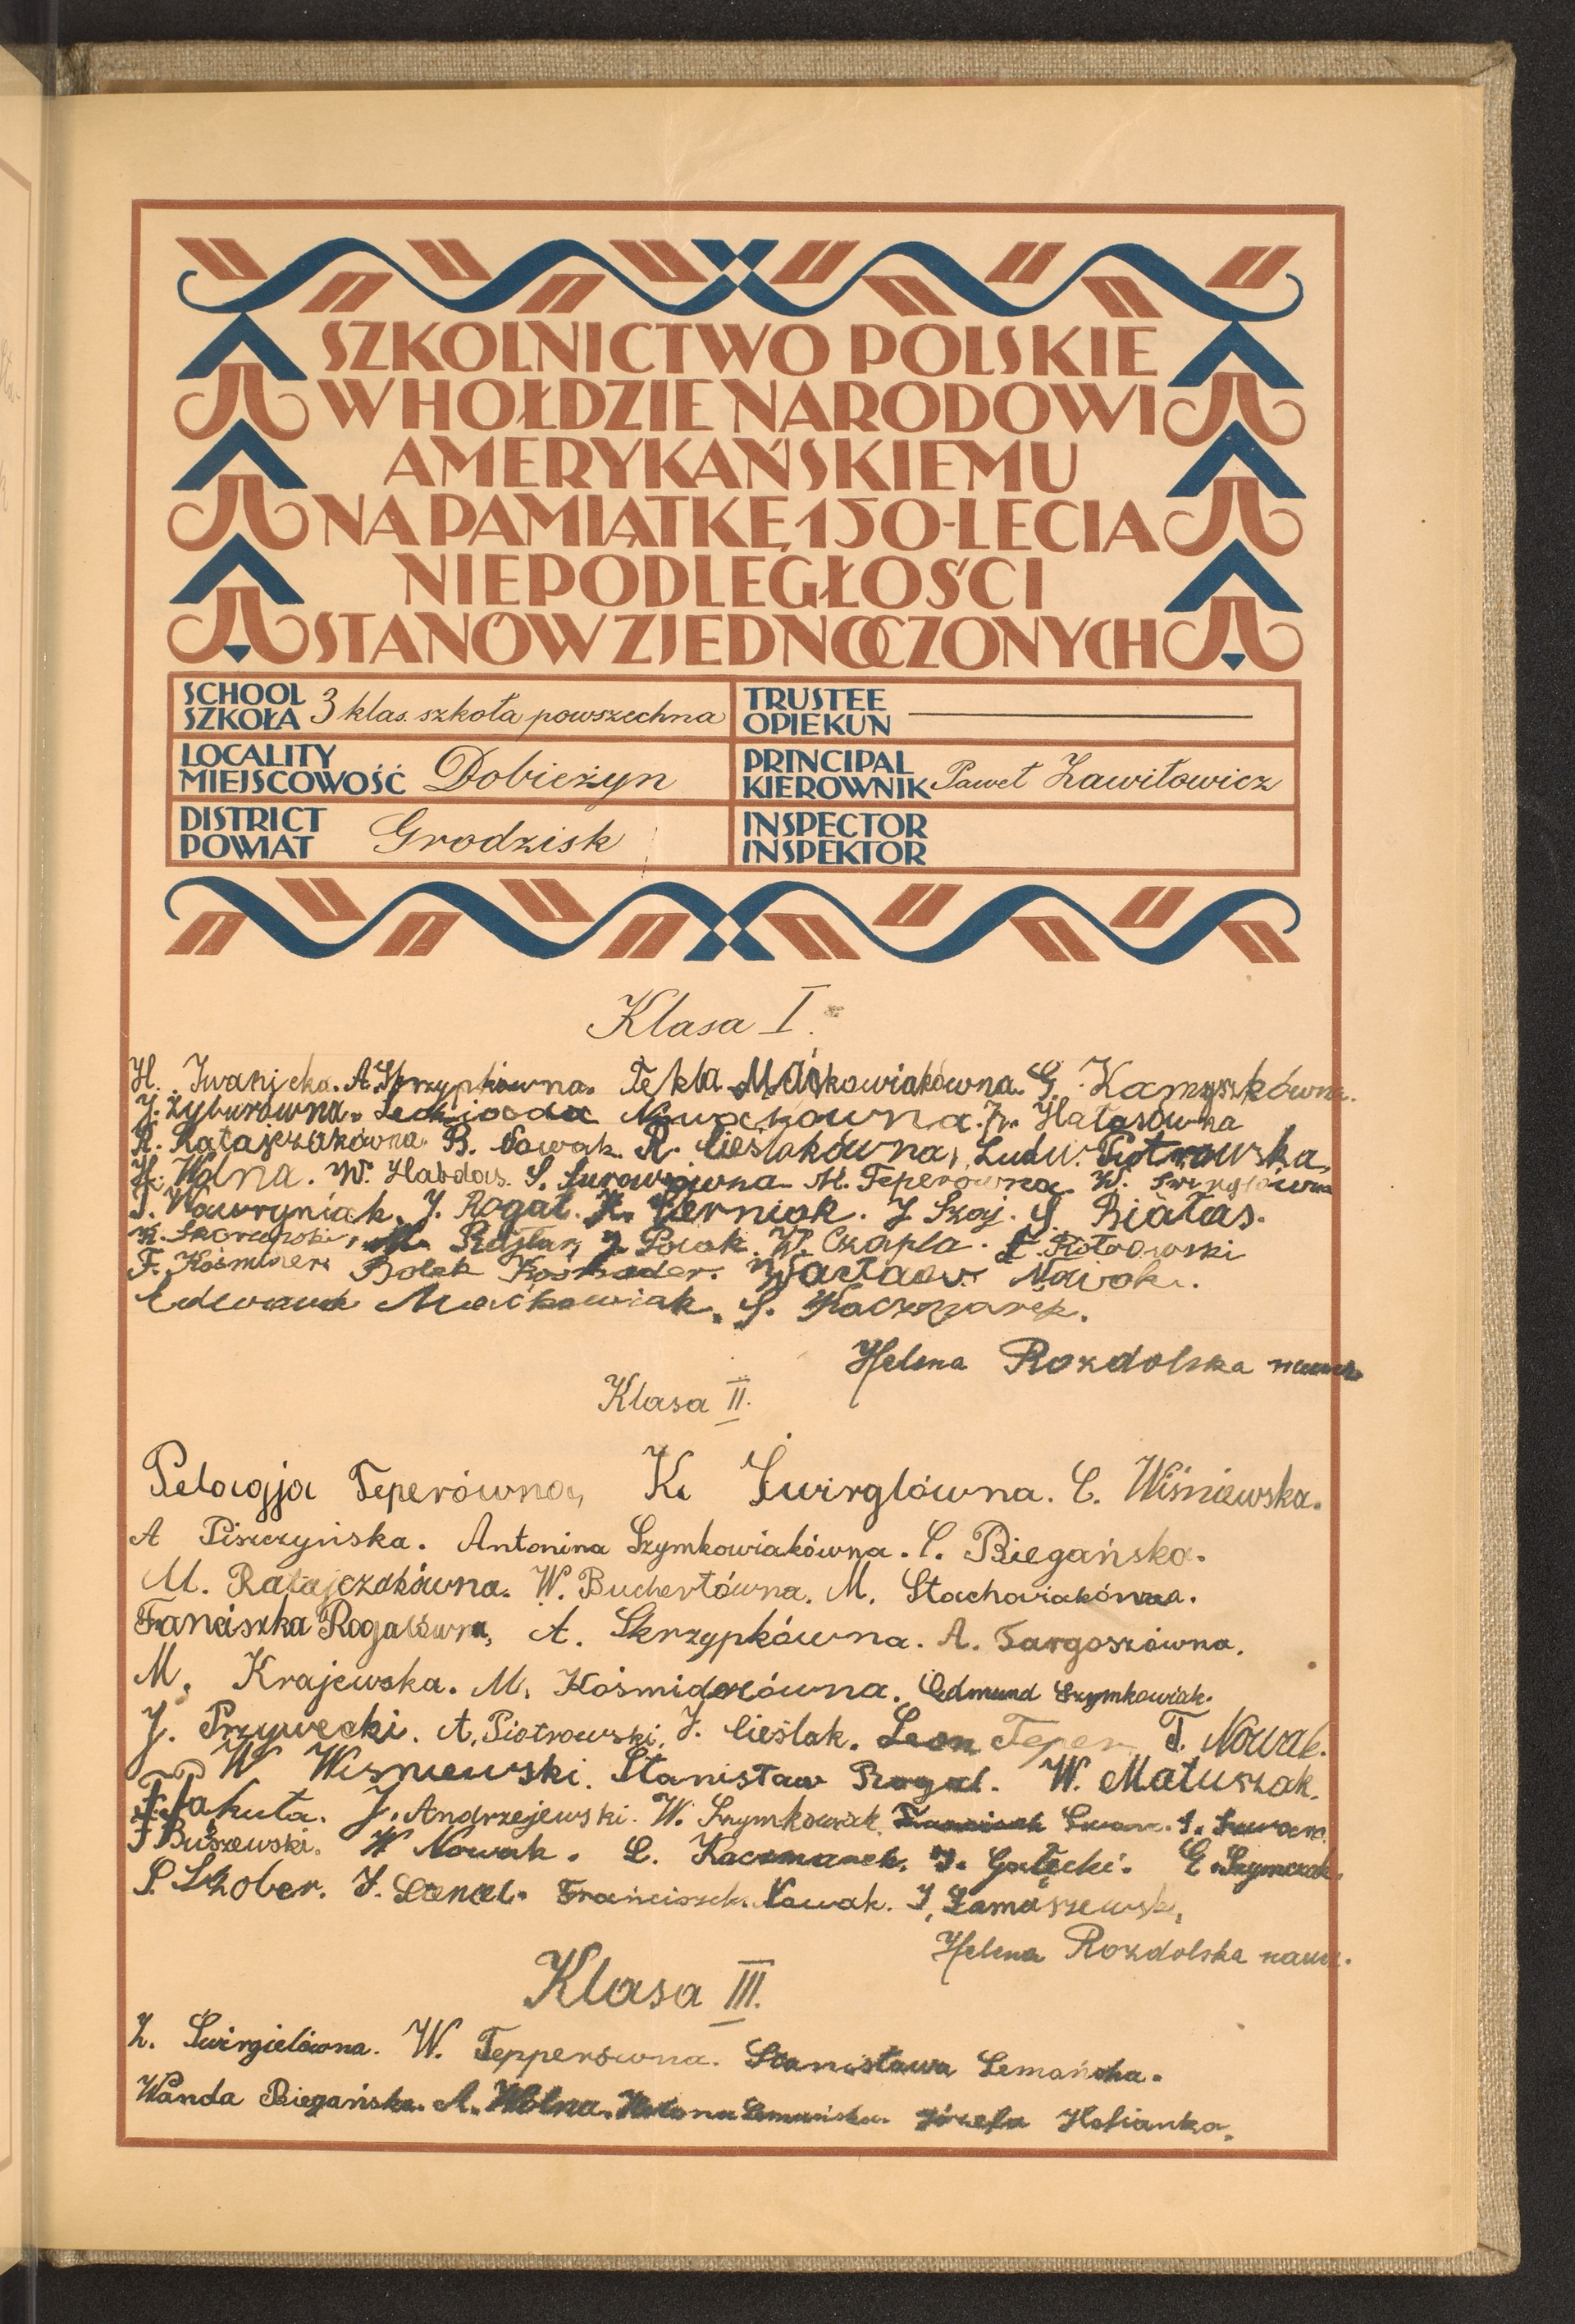 SZKOLNICTWO POLSKIE
W HOŁDZIE NARODOWI
AMERYKAŃSKIEMU
NA PAMIĄTKĘ 150-LECIA
NIEPODLEGŁOŚCI
STANÓW ZJEDNOCZONYCH
SCHOOL
SZKOŁA 3 klas. szkoła powszechna
TRUSTEE
OPIEKUN
LOCALITY
MIEJSCOWOŚĆ Dobieżyn
PRINCIPAL
KIEROWNIK Paweł Zawiłowicz
DISTRICT
POWIAT Grodzisk
INSPECTOR
INSPEKTOR
Klasa I.
H. Iwanicka. A. Skrzypkówna. Tekla Maćkowiakówna. G. Kamyszkówna.
J. Zyburówna. Nowakówna. Hałasówna
R. Ratajczakówna. B. Nowak. R. Cieślakówna, Ludw. Piotrowska,
H. Wolna. W. Habdas. S. Surowiówna M. Teperówna. W. Świrglówna
T. Wawryniak. J. Rogal. K. Czerniak. J. Szaj. S. Białas.
K. Skoracki, M. Rajtar, J. Polak. W. Czapla. F. Piotrowski
F. Kośmider. Bolek Kośmider. Wacław Nowak.
Edward Maćkowiak. S. Kaczmarek.
Helena Rozdolska naucz.
Klasa II.
Pelagja Teperówna, K. Świrglówna. C. Wiśniewska.
A Piszczyńska. Antonina Szymkowiakówna. C. Biegańska.
M. Ratajczakówna. W. Buchertówna. M. Stachowiakówna.
Fanciszka Rogalówna, A. Skrzypkówna. A. Targoszówna.
M. Krajewska. M. Kośmiderówna. Edmund Szymkowiak.
J. Przywecki. A. Piotrowski. J. Cieślak. Leon Teper T. Nowak.
W Wiśniewski. Stanisław Rogal. W. Matuszak.
F. Pakuła. J. Andrzejewski. W. Szymkowiak.
F Buszewski. W Nowak. L. Kaczmarek. J. Gałęcki. E. Szymczak.
S. Szober. J. Franciszek Nowak. J. Tomaszewski,
Helena Rozdolska naucz.
Klasa III.
Z. Świrgielówna. W. Tepperówna. Stanisława Lemańska.
Wanda Biegańska. A. Wolna. Helena Lemańska. Józefa Hofianka.